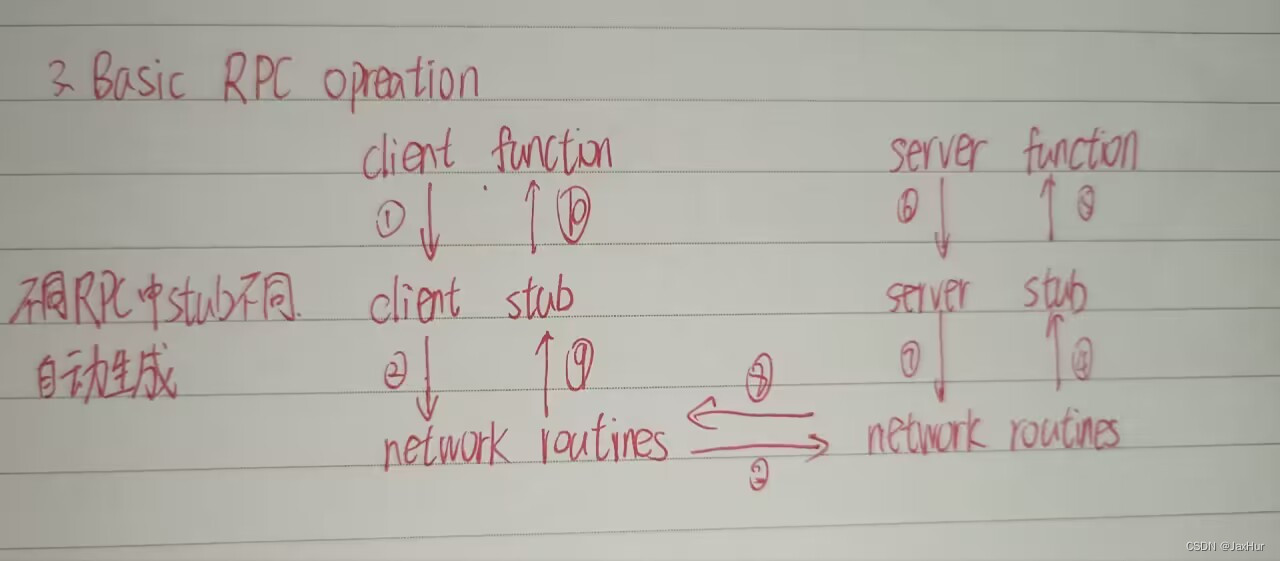 3. Basic RPC opreation
client function server function
① ⑩ ⑥ ⑤
不同RPC中stub不同. client stub server stub
自动生成 ② ⑨ ⑧ ⑦ ④
network routines network routines
③
CSDN @JaxHur